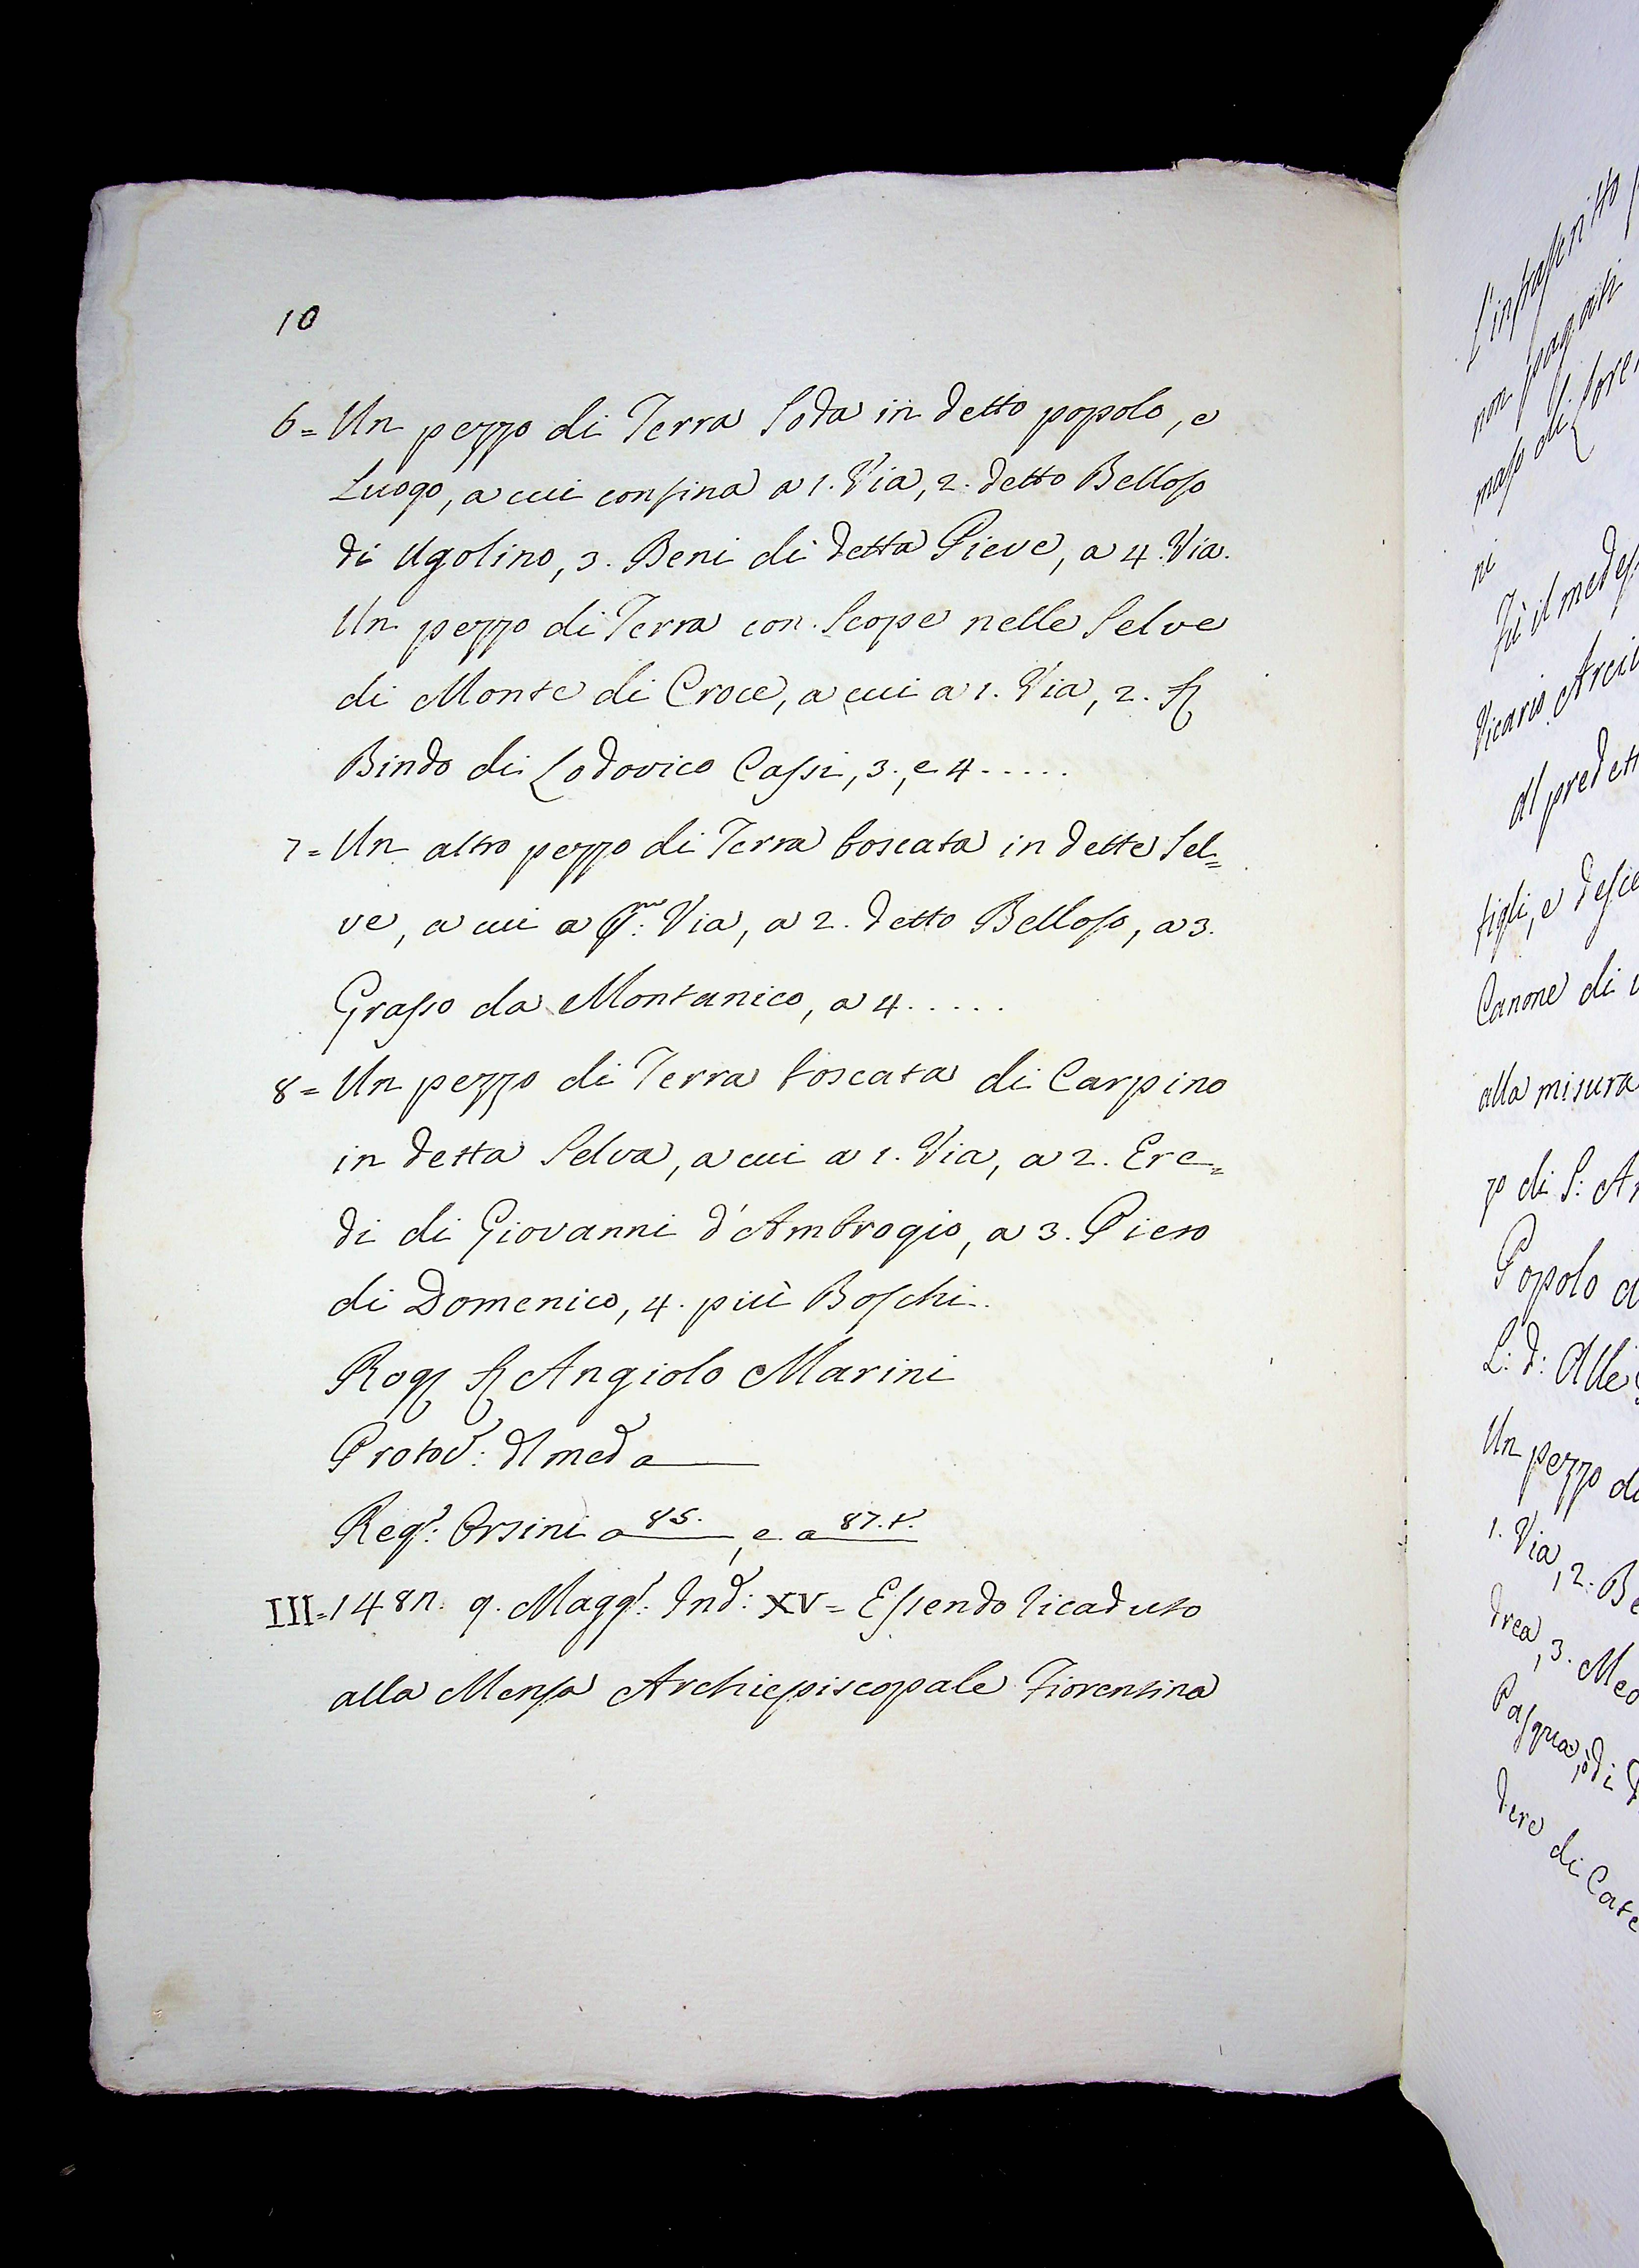 10
6= Un pezzo di Terra Soda in detto popolo, e
Luogo, a cui confina a 1. Via, 2. detto Belloso
di Ugolino, 3. Beni di detta Pieve, a 4. Via.
Un pezzo di Terra con Scope nelle Selve
di Monte di Croce, a cui a 1. Via, 2. S
Bindo di Lodovico Cassi, 3., e 4.....
7= Un altro pezzo di Terra boscata in dette Sel=
ve, a cui a Via, a 2. detto Belloso, a 3.
Grasso da Montanico, a 4.....
8= Un pezzo di Terra boscata di Carpino
in detta Selva, a cui a 1. Via, a 2. Ere=
di di Giovanni d'Ambrogio, a 3. Piero
di Domenico, 4. più Boschi.
Rog S Angiolo Marini
Protoc: del med a
Regr: Orsini a 85. , e a 87.t.
III= 9. Magg: Ind: XV= Essendo ricaduto
alla Mensa Archiepiscopale Fiorentina
L'infrascritto
non pagati
maso di S. Lore
ni
Fù il medes
Vicario Arci
Al predett
figli, e desce
Canone di
alla misura
zo di S: A
Popolo a
L: d: Alle
Un pezzo di
1. Via, 2. Be
drea, 3. Meo
Pasqua, ò di
dere di Cate